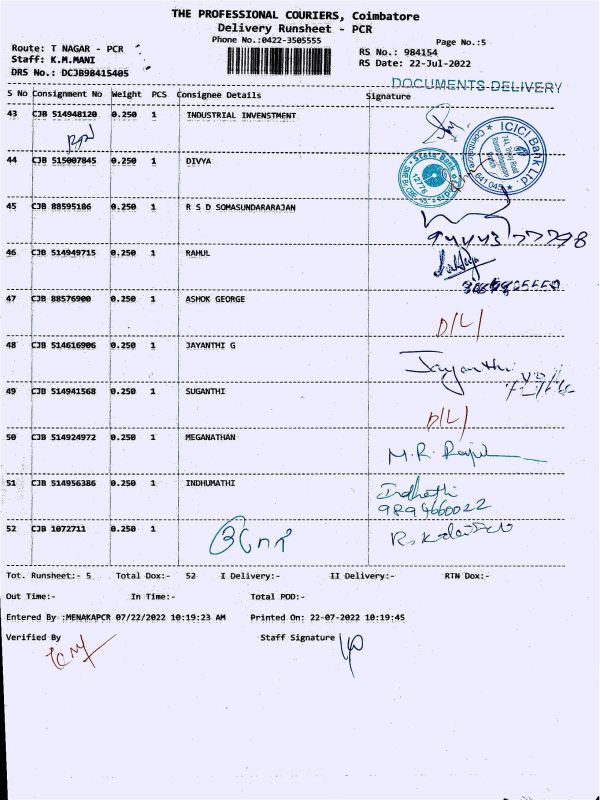 THE PROFESSIONAL COURIERS, Coimbatore
Delivery Runsheet - PCR
Phone No.:0422-3505555
Page No.:5
Route: T NAGAR - PCR
RS No.: 984154
Staff: K.M.MANI
RS Date: 22-Jul-2022
DRS No.: DCJB98415405
DOCUMENTS DELIVERY
S No Consignment No Weight PCS Consignee Details Signature
43 CJB 514948120 0.250 1 INDUSTRIAL INVENSTMENT
ICICI Bank Ltd
Coimbatore 641 045
State Bank of India
12776
44 CJB 515007845 0.250 1 DIVYA
45 CJB 88595186 0.250 1 R S D SOMASUNDARARAJAN
46 CJB 514949715 0.250 1 RAHUL
47 CJB 88576900 0.250 1 ASHOK GEORGE
D/L/
48 CJB 514616906 0.250 1 JAYANTHI G
Jayanthi
49 CJB 514941568 0.250 1 SUGANTHI
D/L/
50 CJB 514924972 0.250 1 MEGANATHAN
M.R. Raju
51 CJB 514956386 0.250 1 INDHUMATHI
9894660022
52 CJB 1072711 0.250 1
Tot. Runsheet:- 5 Total Dox:- 52 I Delivery:- II Delivery:- RTN Dox:-
Out Time:- In Time:- Total POD:-
Entered By :MENAKAPCR 07/22/2022 10:19:23 AM Printed On: 22-07-2022 10:19:45
Verified By Staff Signature